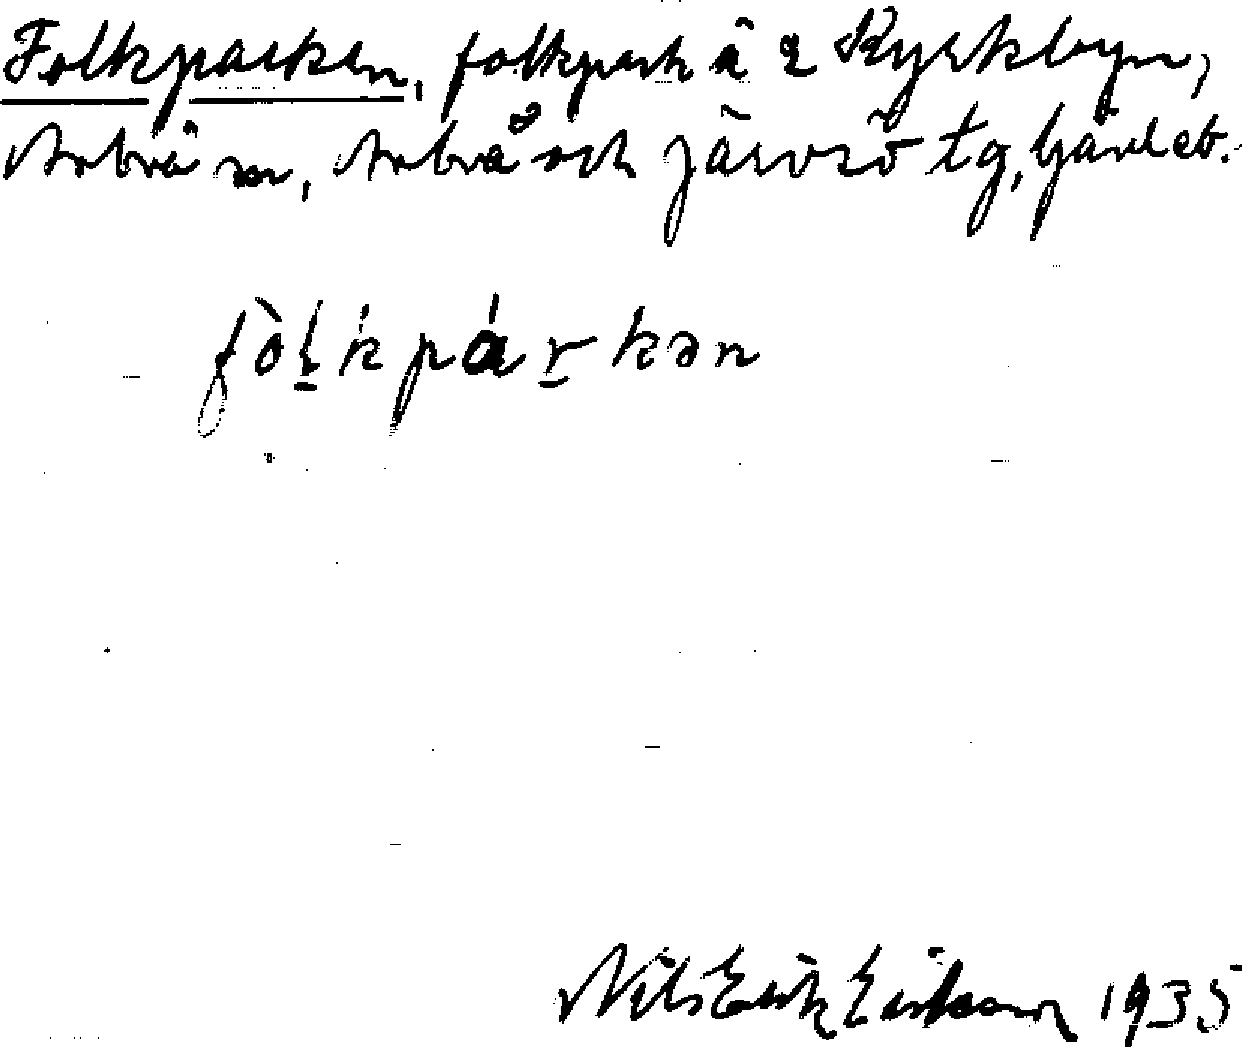 Folkparken, folkpark å 2 Kyrkbyn,
Arbrå sn, Arbrå och Järvsö tg, Gävleb.
fòl̠kpár̠kən
Nils Erik Eriksson 1935